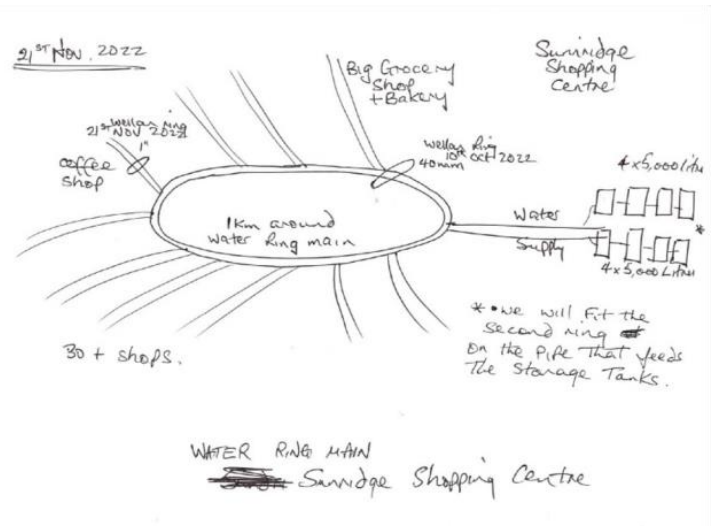 21ST Nov. 2022
Sunridge
Shopping
Centre
Big Grocery
Shop
+ Bakery
Wellan Ring
21st NOV 2022
1"
Coffee
Shop
Wellan Ring
10th Oct 2022
40mm
4 x 5,000 Litre
1km around
water Ring main
Water
Supply
*
4 x 5,000 Litre
30 + shops.
* • we will Fit the
second ring
on the PIPE That feeds
The Storage Tanks.
WATER RING MAIN
Sunridge Shopping Centre